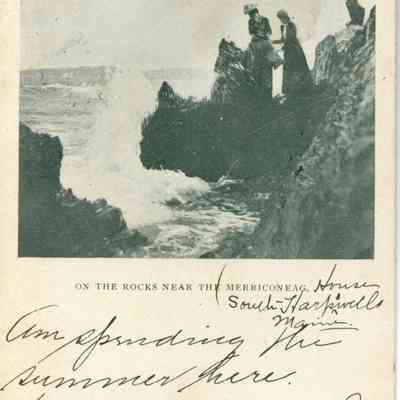 ON THE ROCKS NEAR THE MERRICONEAG, House
South Harpswell
Maine.
Am spending the
summer here.